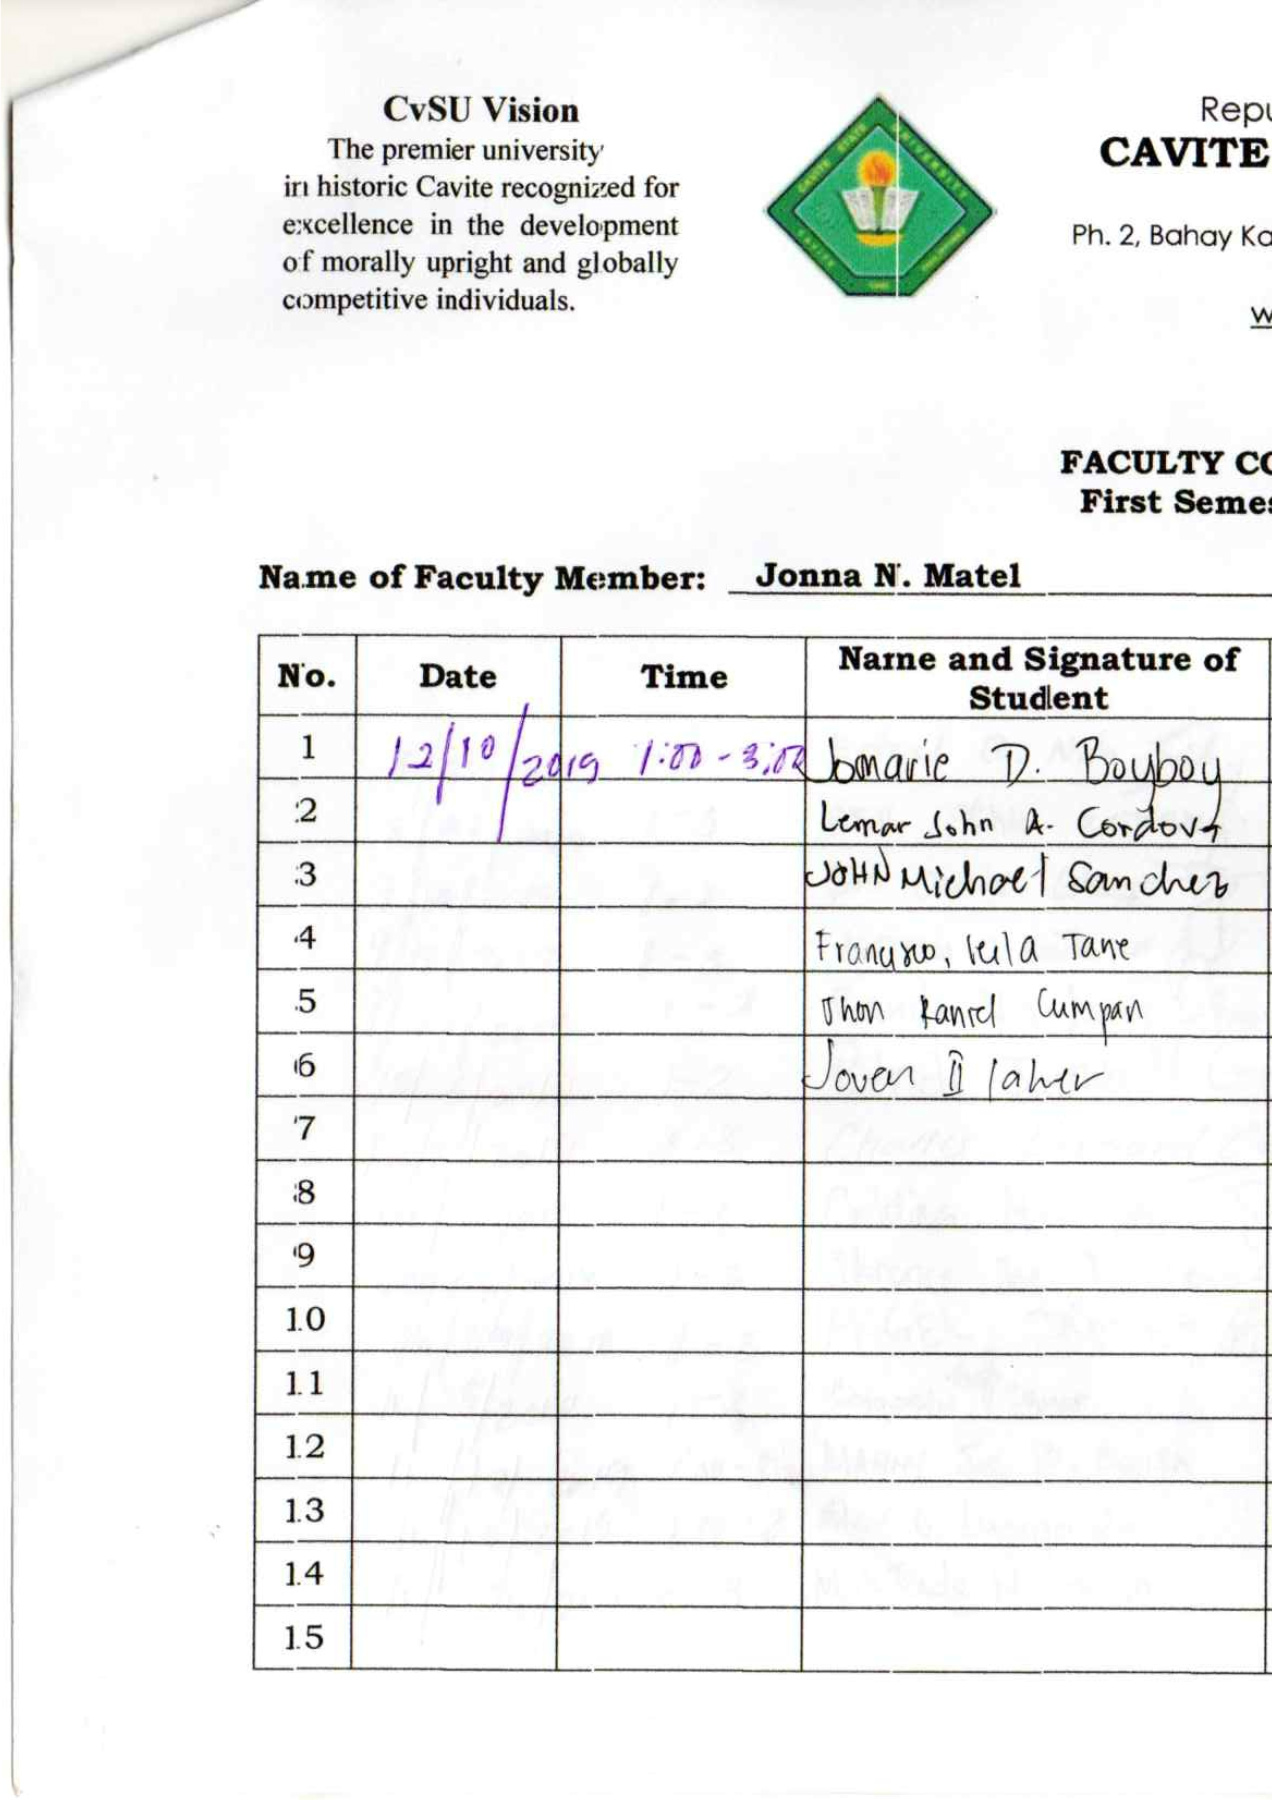 CvSU Vision
The premier university
in historic Cavite recognized for
excellence in the development
of morally upright and globally
competitive individuals.
CAVITE STATE UNIVERSITY
CAVITE
Repu
CAVITE
Ph. 2, Bahay Ka
w
FACULTY CO
First Semes
Name of Faculty Member: Jonna N. Matel
No. Date Time Name and Signature of
Student
1 12/10/2019 1:00-3:00 Jomarie D. Boyboy
2 Lemar John A. Cordova
3 JOHN Michael Sanchez
4 Francisco, Tane
5 Jhon Cumpan
6 Joven II
7
8
9
10
11
12
13
14
15